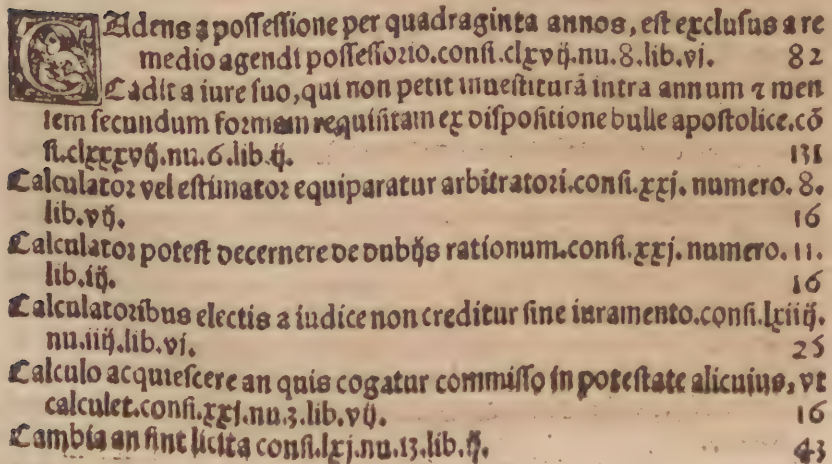 CAdens a possessione per quadraginta annos, est exclusus a re
medio agendi possessorio.consi.clxvij.nu.8.lib.vi. 82
Cadit a iure suo, qui non petit inuestiturā intra annum ⁊ men
sem secundum formam requisitam ex dispositione bulle apostolice.cō
si.clxxxvij.nu.6.lib.ij. 131
Calculator vel estimator equiparatur arbitratori.consi.xxj. numero. 8.
lib.vij. 16
Calculator potest decernere de dubijs rationum.consi.xxj. numero. 11.
lib.iij. 16
Calculatoribus electis a iudice non creditur sine iuramento.consi.lxiiij.
nu.iiij.lib.vi. 25
Calculo acquiescere an quis cogatur commisso in potestate alicuius, vt
calculet.consi.xxj.nu.3.lib.vij. 16
Cambia an sint licita consi.lxj.nu.13.lib.ij. 43